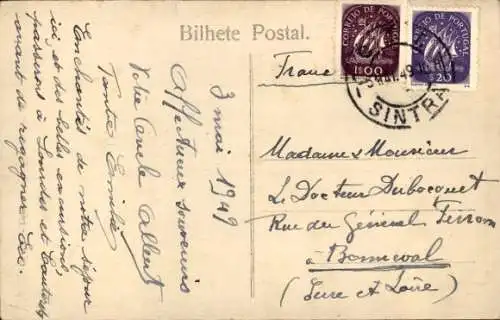 Bilhete Postal.
CORREIO DE PORTUGAL
1$00
CORREIO DE PORTUGAL
$20
SINTRA
France
Madame & Monsieur
Le Docteur Dubocquet
Rue du Général
à Bonneval
(Eure et Loire)
3 mai 1949
Affectueux souvenirs
Votre oncle Albert
Tante Emilie
Enchantés de notre séjour
ici et des belles excursions,
passerons à Londres et
avant de regagner